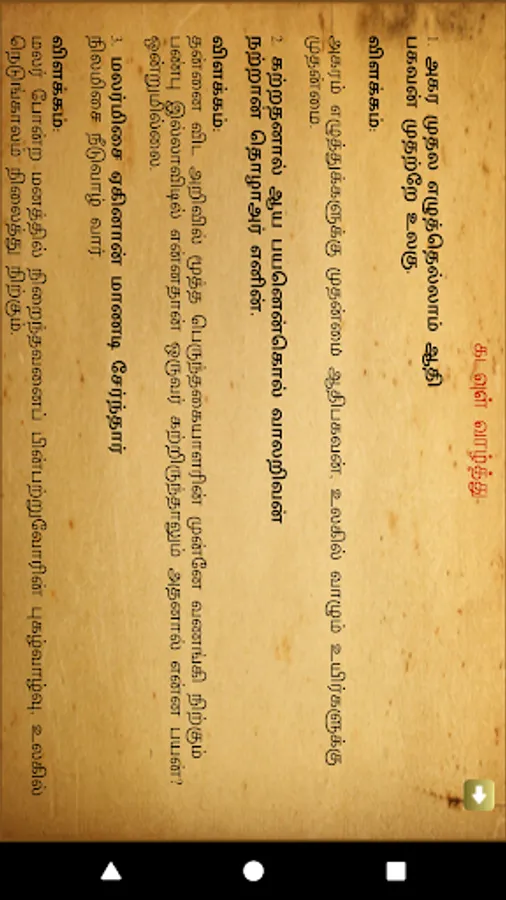 கடவுள் வாழ்த்து.
1. அகர முதல எழுத்தெல்லாம் ஆதி
பகவன் முதற்றே உலகு.
விளக்கம்:
அகரம் எழுத்துக்களுக்கு முதன்மை ஆதிபகவன், உலகில் வாழும் உயிர்களுக்கு
முதன்மை.
2. கற்றதனால் ஆய பயனென்கொல் வாலறிவன்
நற்றாள் தொழாஅர் எனின்.
விளக்கம்:
தன்னை விட அறிவில் மூத்த பெருந்தகையாளரின் முன்னே வணங்கி நிற்கும்
பண்பு இல்லாவிடில் என்னதான் ஒருவர் கற்றிருந்தாலும் அதனால் என்ன பயன்?
ஒன்றுமில்லை.
3. மலர்மிசை ஏகினான் மாணடி சேர்ந்தார்
நிலமிசை நீடுவாழ் வார்
விளக்கம்:
மலர் போன்ற மனத்தில் நிறைந்தவனைப் பின்பற்றுவோரின் புகழ்வாழ்வு, உலகில்
நெடுங்காலம் நிலைத்து நிற்கும்.